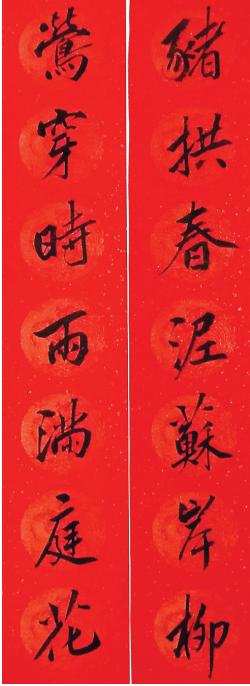 豬拱春泥蘇岸柳
鶯穿時雨滿庭花